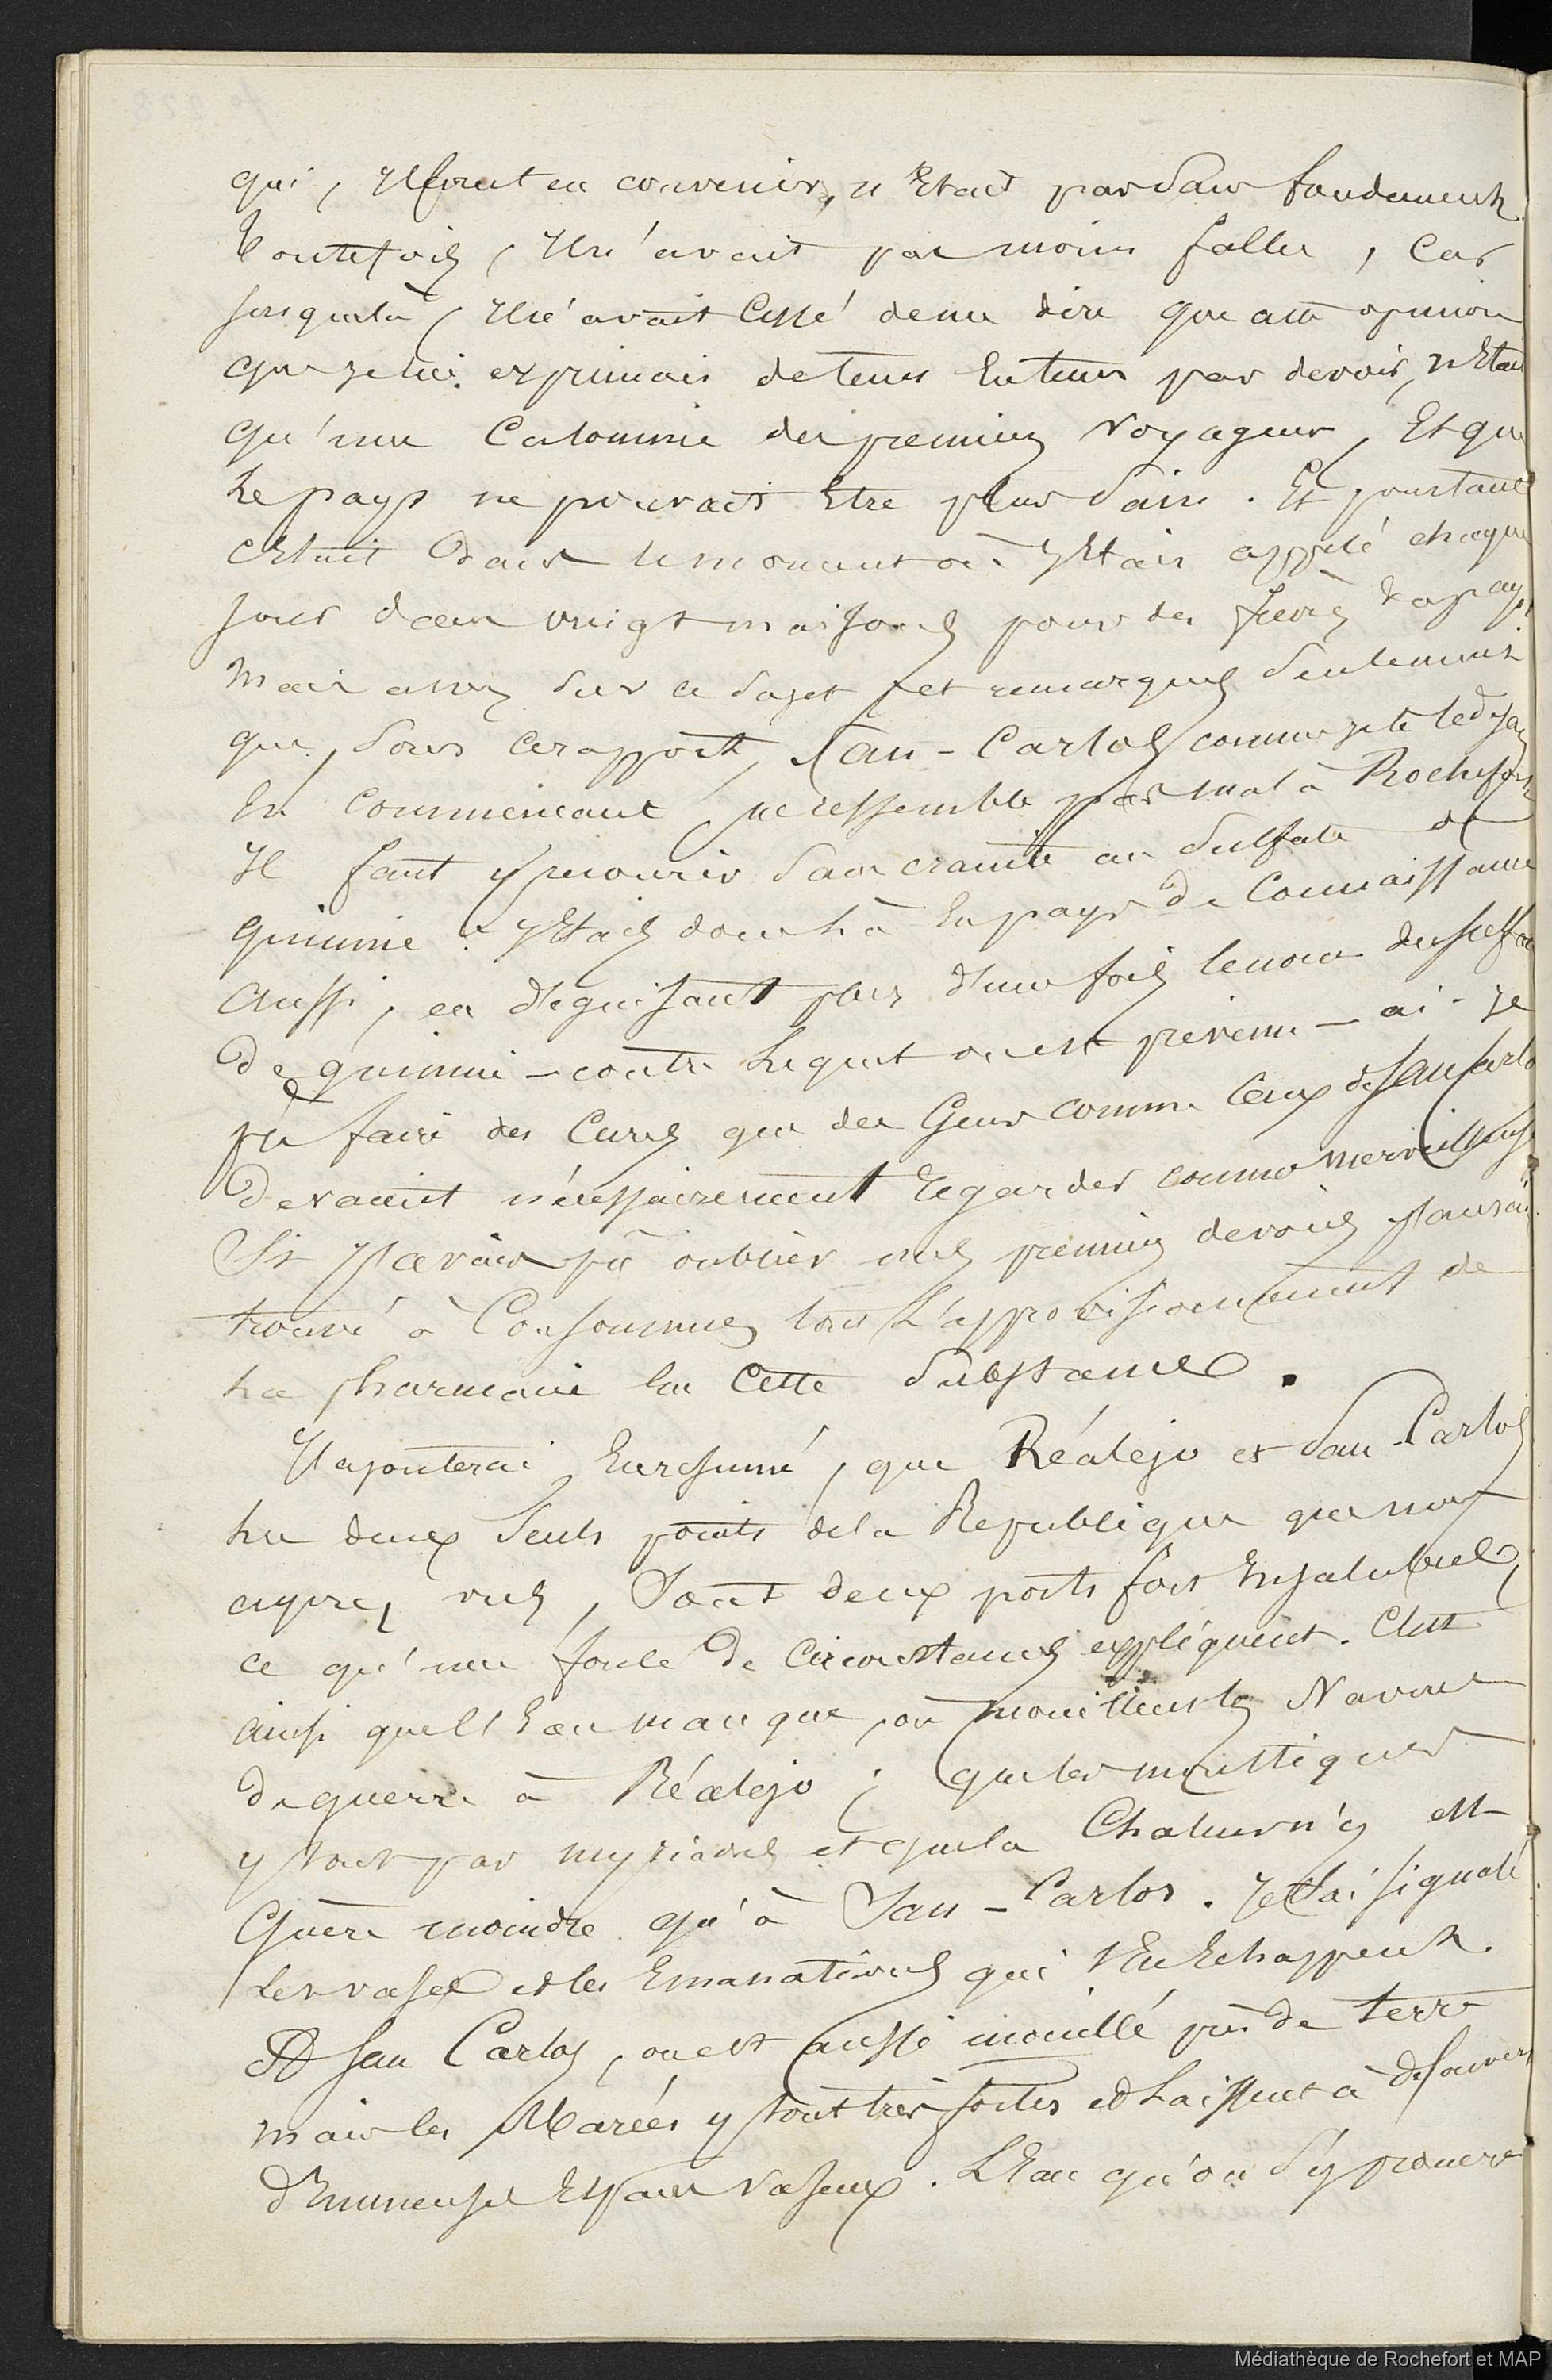 qui, il faut en convenir, n'était pas sans fondement.
Toutefois, il n'avait pas moins fallu, car
jusque là, il n'avait cessé de me dire que cette opinion
que je lui exprimais de tems en tems par devoir, n'était
qu'une calomnie des premiers voyageurs, et que
le pays ne pouvait être plus sain. Et pourtant
c'était dans le moment où j'étais appelé chaque
jour dans vingt maisons pour des fièvres du pays.
Mais assez sur ce sujet, et remarquez seulement
que, sous ce rapport, San-Carlos, comme je te le disais
en commençant, ne ressemble pas mal à Rochefort
Il faut y recourir sans crainte au sulfate de
quinine. J'étais donc là en pays de connaissance
aussi, en déguisant plus d'une fois le nom du sulfate
de quinine — contre lequel on est prévenu — ai-je
pu faire des cures que des gens comme ceux de San Carlos
devaient nécessairement regarder comme merveilleuses
Si j'avais pu oublier mes premiers devoirs j'aurais
trouvé à consommer tout l'approvisionnement de
la pharmacie en cette substance.
J'ajouterai, en résumé, que Réalejo et San-Carlos
les deux seuls points de la République que nous
ayons vus, sont deux ports fort insalubres,
ce qu'une foule de circonstances expliquent. C'est
ainsi que l'eau manque, où mouillent les Navires
de guerre à Réalejo ; que les moustiques
y sont par myriades et que la chaleur n'y est
guère moindre qu'à San-Carlos. Je t'ai signalé
les vases et les émanations qui s'en échappent.
A San Carlos, on est aussi mouillé près de terre
mais les Marées y sont très fortes et laissent à découvert
d'immenses espaces vaseux. L'Eau qu'on s'y procure